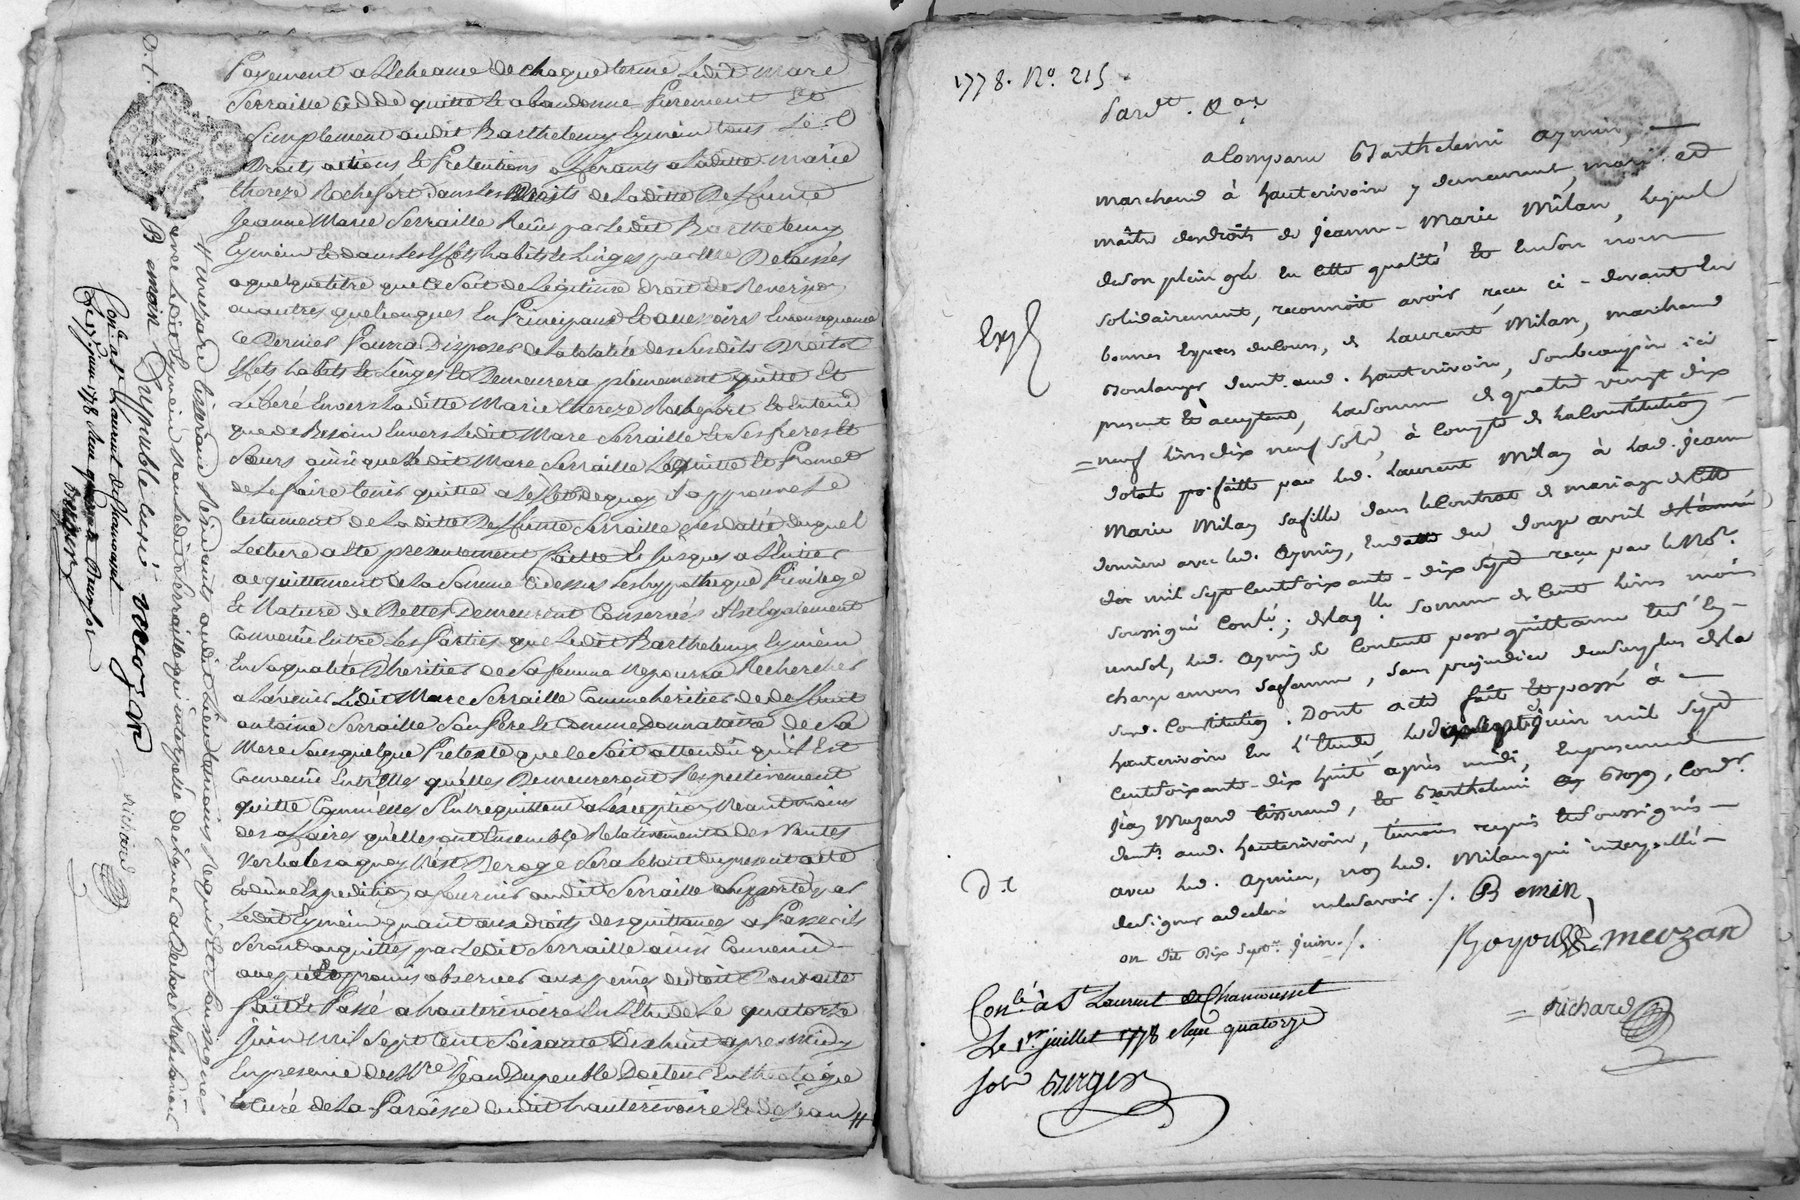 Payement a L'echeance de chaque terme Ledit Marc
Serraille Cedde quitte et abandonne Purement Et
Simplement audit Barthelemy Eymein tous Les
Droits actions Et Pretentions afferants a Laditte Marie
Thereze Rochefort dans Les Droits de Laditte Deffunte
Jeanne Marie Serraille Reçus par Ledit Barthelemy
Eymein Et dans Les Effets habits Et Linges par Elle Delaissés
a quelque titre que Ce Soit de Legitime droit de Reversion
ou autres quelconques En Principaux Et accessoires En consequence
Ce Dernier Pourra Disposer de La totalité des Susdits Droits
Effets habits Et Linges Et Demeurera pleinement quitte Et
Liberé Envers Laditte Marie Thereze Rochefort Et Entend
que de Besoin Envers Ledit Marc Serraille Et Ses freres Et
Sœurs ainsi que Ledit Marc Serraille Le quitte Et Promet
de Le faire tenir quitte a L'effet de quoy il approuve Le
testament de Laditte Deffunte Serraille duquel
Lecture a Eté presentement faitte Et Jusques a L'entier
acquittement de La Somme Ci dessus Les hypotheque Privilege
Et Nature de Dettes Demeureront Conservés Il est Egalement
Convenu Entre Les Parties que Ledit Barthelemy Eymein
En Sa qualité d'heritier de Sa femme Ne pourra Rechercher
a L'avenir Ledit Marc Serraille Comme heritier de deffunt
antoine Serraille Son Père Et Comme Donnataire de Sa
Mere Sous quelque Pretexte que Ce Soit attendu qu'il Est
Convenu Entr'elles qu'elles Demeureront Respectivement
quitte Comme Elles S'entrequittent a L'exception Neantmoins
des affaires qu'elles ont Ensemble Relativement a des Ventes
Verbales a quoy N'est Derogé Sera Le Cout du present acte
Et d'une Expedition a fournir audit Serraille Supporté par
Ledit Eymein quant aux droits des quittances a Passer ils
Seront acquittés par Ledit Serraille ainsi Convenu
promis observer aux peines de droit Dont acte
fait Et Passé a hauterivoire En L'Etude Le quatorze
Juin mil Sept Cent Soixante Dix huit apres Midy
En presence de Mre Jean Dupeuble Docteur En theologie
Et Curé de La Paroisse dudit hauterivoire Et de Jean //
// Mersard tisserand Residants audit Lieu temoins Requis Et Soussignés
avec Ledit Eymein Non Ledit Serraille qui interpellé de signer a Declaré Ne Le Savoir
B emoin Dupeuble curé meuzan
Richard
Conlé a St Laurent de Chamousset
Le 27 juin 1778 Reçu
Berger
D. E.
1778. No. 215
Pardt.
a Comparu Barthelemi aymin,
marchand à hauterivoire y demeurant, mari et
maître des droits de Jeanne-Marie Milan, lequel
de son plein gré En cette qualité Et En son nom
solidairement, reconnoît avoir reçu ci-devant En
bonnes Espèces du cours, de Laurent Milan, marchand
Boulanger demt. aud. hauterivoire, son beau père ici
present Et acceptant, la somme de quatre vingt dix
= neuf livres dix neuf sols, à Compte de la Constitution
dotale faitte par led. Laurent Milan à lad. Jeanne
Marie Milan sa fille dans le Contrat de mariage de Cette
derniere avec led. Aymin, En datte du douze avril
mil sept Cent soixante-dix sept reçu par le Nore.
soussigné Conlé; de laqlle somme de Cent livres moins
un sol, led. aymin se Contente passe quittance Et s'En
charge envers sa femme, sans prejudice du surplus de la
susd. Constitution. Dont acte fait Et passé à
hauterivoire En l'Etude, le juin mil sept
Cent soixante-dix huit après midi, En presence de
Jean Muzard tisserand, Et Barthelemi Boyon, Cordr.
demts. aud. hauterivoire, témoins requis Et soussignés
avec led. Aymin, non led. Milan qui interpellé
de signer a declaré ne le savoir ./. B emin
on dit Dix Sept juin ./.
Boyou meuzan
= Richard
Exp
D. E
Conlé à St Laurent de Chamousset
Le 1er juillet 1778 Reçu quatorze
sols Berger